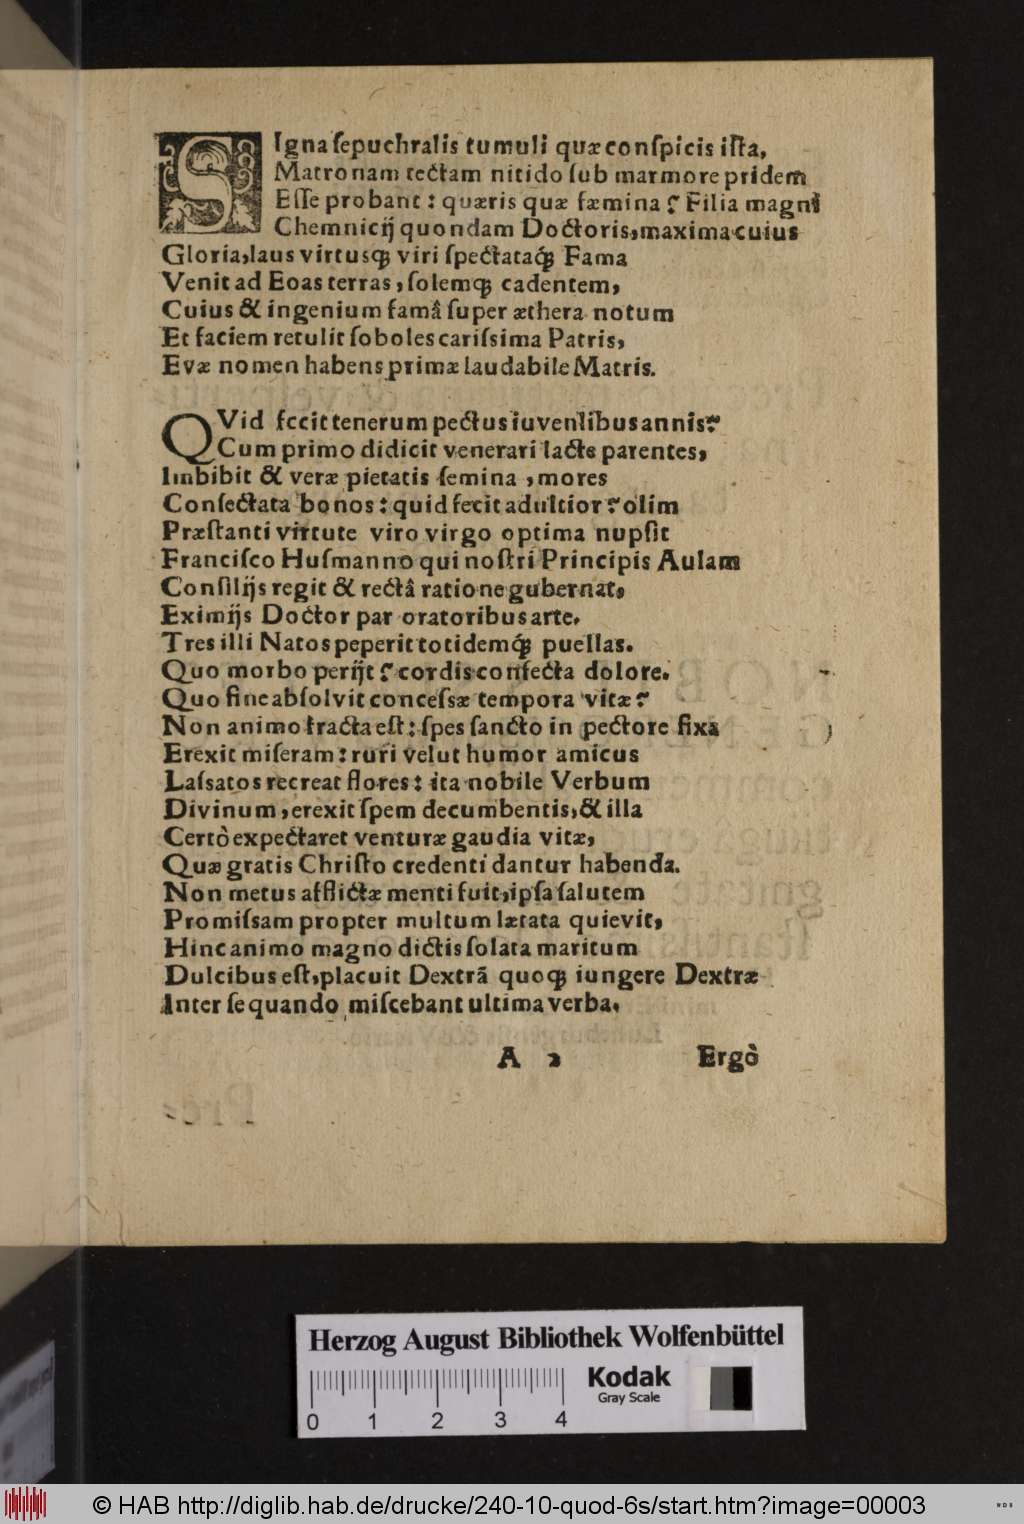 SIgna ſepuchralis tumuli quæ conſpicis iſta,
Matronam tectam nitido ſub marmore pridem
Eſſe probant: quæris quæ fæmina? Filia magni
Chemnicij quondam Doctoris, maxima cuius
Gloria, laus virtusq́; viri ſpectataq́; Fama
Venit ad Eoas terras, ſolemq́; cadentem,
Cuius & ingenium famâ ſuper æthera notum
Et faciem retulit ſoboles cariſsima Patris,
Evæ nomen habens primæ laudabile Matris.
QVid fecit tenerum pectus iuvenlibus annis?
Cum primo didicit venerari lacte parentes,
Imbibit & veræ pietatis ſemina, mores
Conſectata bonos: quid fecit adultior? olim
Præſtanti virtute viro virgo optima nupſit
Franciſco Huſmanno qui noſtri Principis Aulam
Conſilijs regit & rectâ ratione gubernat,
Eximijs Doctor par oratoribus arte.
Tres illi Natos peperit totidemq́; puellas.
Quo morbo perijt? cordis confecta dolore.
Quo fine abſolvit conceſsæ tempora vitæ?
Non animo fracta eſt: ſpes ſancto in pectore fixa
Erexit miſeram: ruri velut humor amicus
Laſsatos recreat flores: ita nobile Verbum
Divinum, erexit ſpem decumbentis, & illa
Certò expectaret venturæ gaudia vitæ,
Quæ gratis Chriſto credenti dantur habenda.
Non metus afflictæ menti fuit, ipſa ſalutem
Promiſsam propter multum lætata quievit,
Hinc animo magno dictis ſolata maritum
Dulcibus eſt, placuit Dextrã quoq; iungere Dextræ
Inter ſe quando miſcebant ultima verba.
A 2 Ergò
Herzog August Bibliothek Wolfenbüttel
Kodak
Gray Scale
0 1 2 3 4
© HAB http://diglib.hab.de/drucke/240-10-quod-6s/start.htm?image=00003